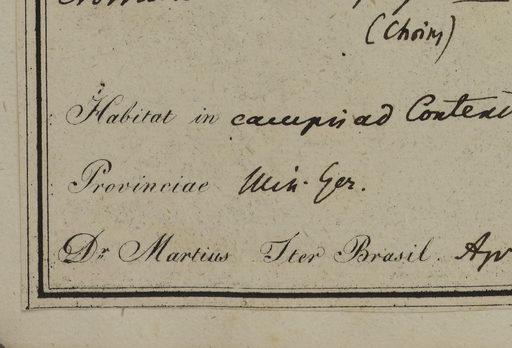 (Chois)
Habitat in campis ad Conten
Provinciae Min. Ger.
Dr. Martius Iter Brasil. Apr